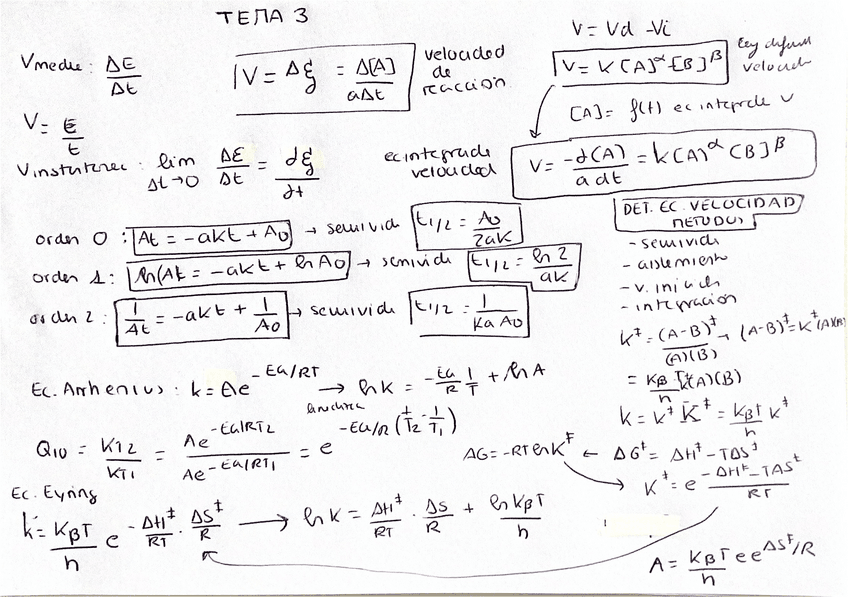 TEMA 3
Vmedie : ΔE/Δt
V = Δξ = Δ[A]/aΔt velocidad de reaccion
V = Vd - Vi
V = K[A]^α [B]^β
V = E/t
[A] = f(t) ec integrade v
Vinstantanec : lim Δt→0 ΔE/Δt = dξ/dt
ec integrade velocidad V = -d(A)/a dt = k(A)^α (B)^β
DET. EC. VELOCIDAD METODOS
- semivide
- aislemiento
- v. iniciales
- integración
orden 0 : At = -akt + A0 → semivide t1/2 = A0/2aK
orden 1 : ln(At = -akt + ln A0 → semivide t1/2 = ln 2/aK
orden 2 : 1/At = -akt + 1/A0 → semivide t1/2 = 1/Ka A0
K‡ = (A-B)‡/(A)(B) → (A-B)‡ = K‡(A)(B)
= KβT/h K‡(A)(B)
k = K‡ K̄‡ = KβT/h K‡
Ec. Arrhenius : k = Ae^-Ea/RT → ln k = -Ea/R 1/T + ln A
Q10 = KT2/KT1 = Ae^-Ea/RT2 / Ae^-Ea/RT1 = e^-Ea/R (1/T2 - 1/T1)
ΔG = -RT ln K‡ ← ΔG‡ = ΔH‡ - TΔS‡
K‡ = e -ΔH‡ - TΔS‡/RT
Ec. Eyring
k = KβT/h e -ΔH‡/RT · ΔS‡/R → ln k = ΔH‡/RT · ΔS/R + ln KβT/h
A = KβT/h e e^ΔS‡/R